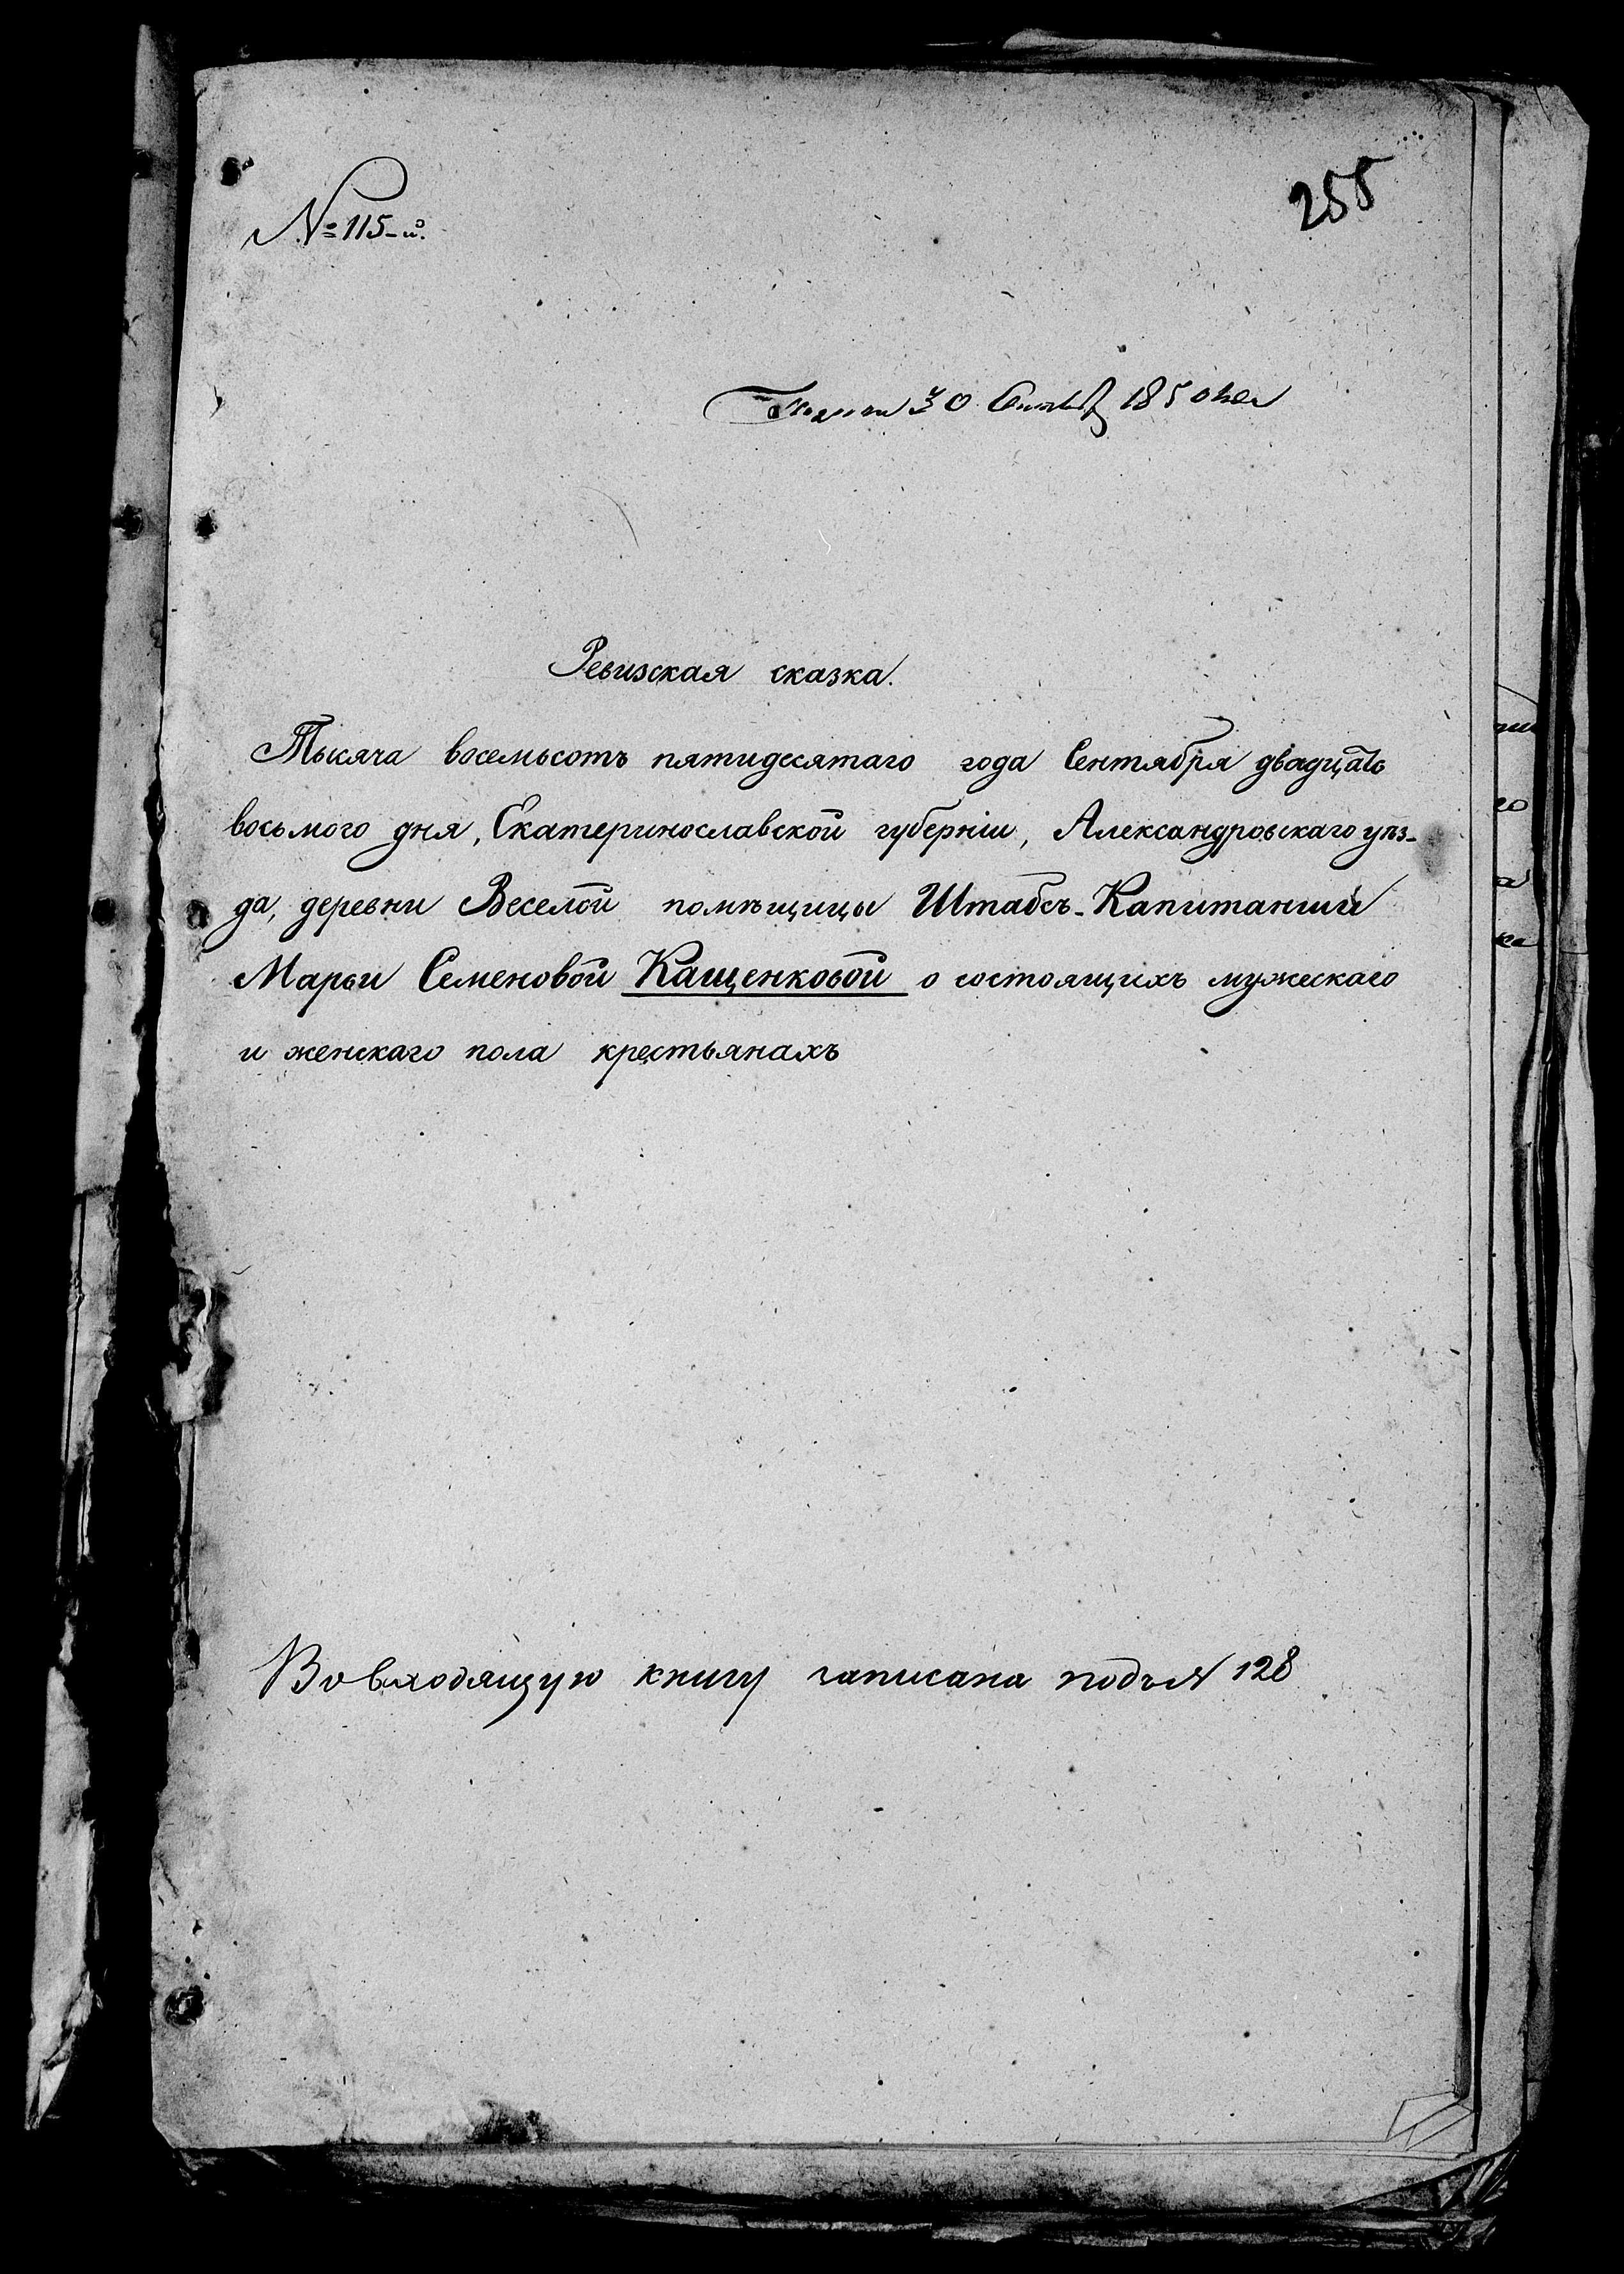 № 115-й.
255
30 Сентяб 1850 года
Ревизская сказка.
Тысяча восемьсотъ пятидесятаго года Сентября двадцать
восьмого дня, Екатеринославской губерніи, Александровскаго уѣз-
да, деревни Веселой помѣщицы Штабсъ-Капитанши
Марьи Семеновой Кащенковой о состоящихъ мужескаго
и женскаго пола крестьянахъ
Во входящую книгу записана подъ № 128